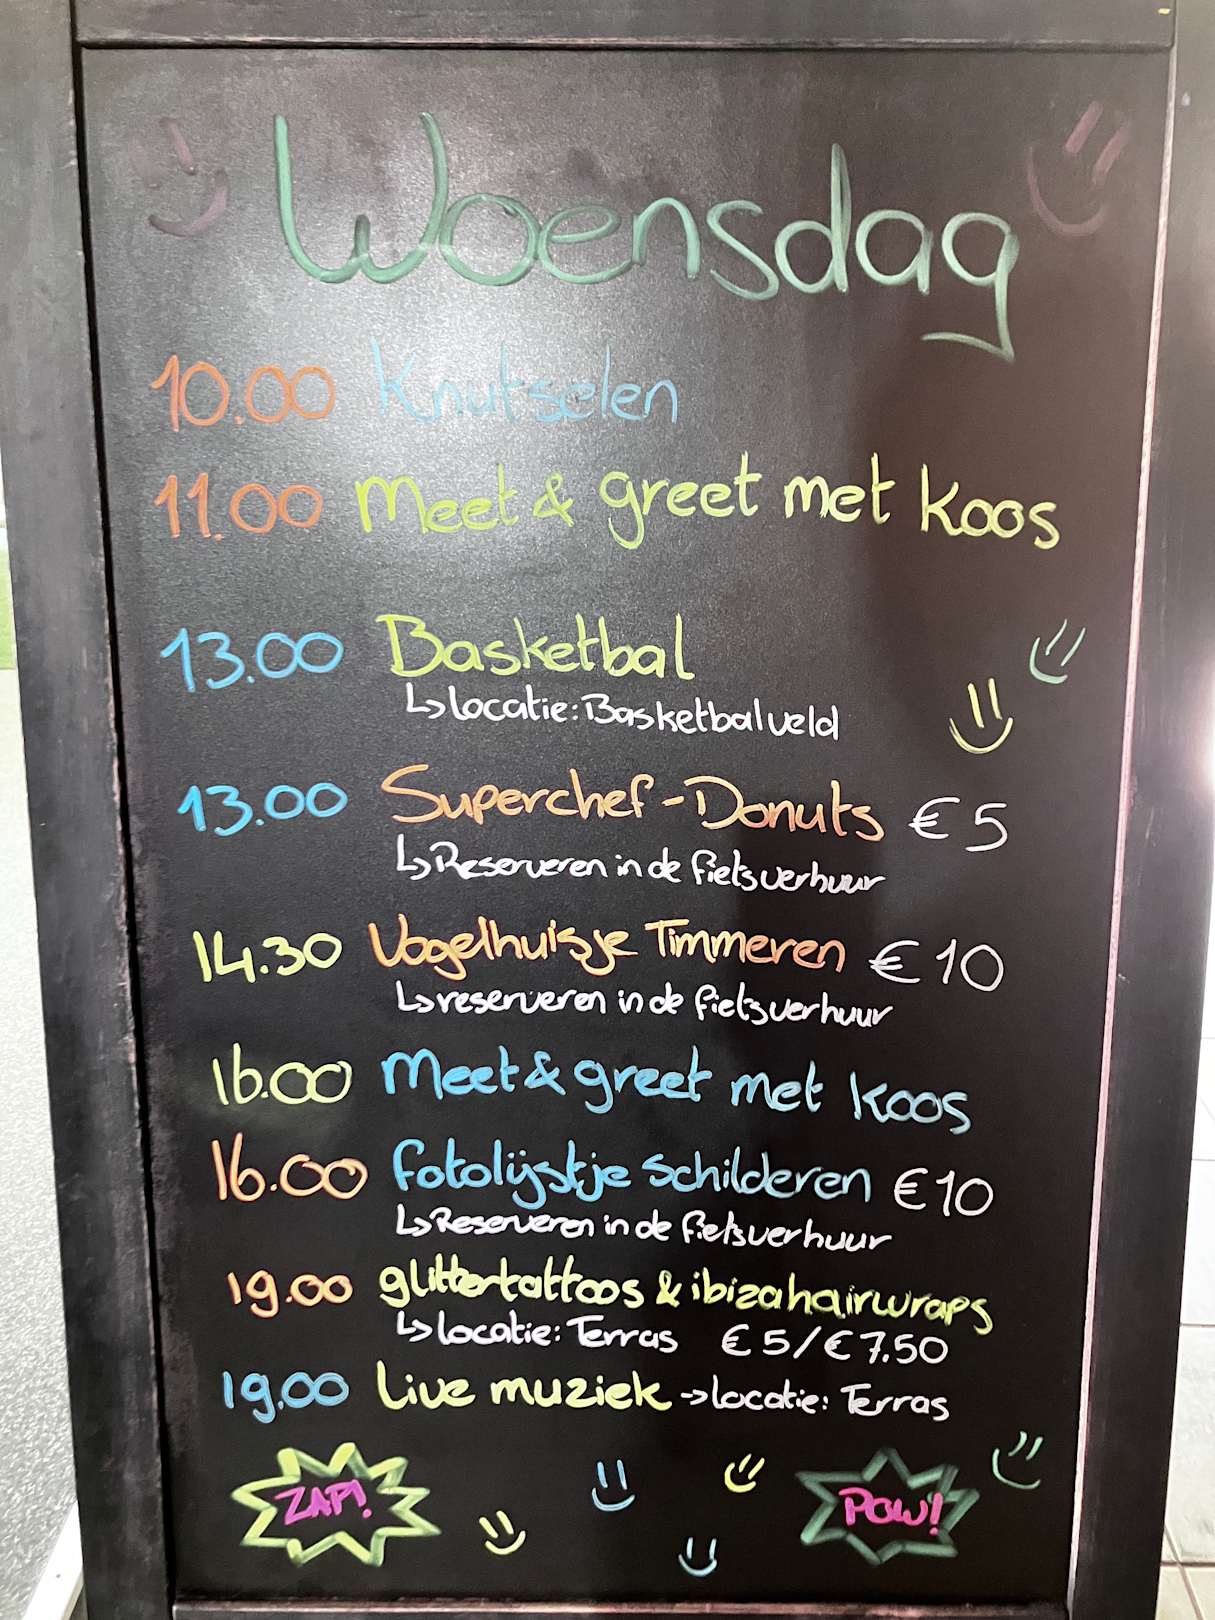 Woensdag
10.00 Knutselen
11.00 Meet & greet met Koos
13.00 Basketbal
↳ locatie: Basketbalveld
13.00 Superchef-Donuts € 5
↳ Reserveren in de fietsverhuur
14.30 Vogelhuisje Timmeren € 10
↳ reserveren in de fietsverhuur
16.00 Meet & greet met Koos
16.00 fotolijstje schilderen € 10
↳ Reserveren in de fietsverhuur
19.00 glittertattoos & ibizahairwraps
↳ locatie: Terras € 5/€ 7.50
19.00 Live muziek → locatie: Terras
ZAP! POW!